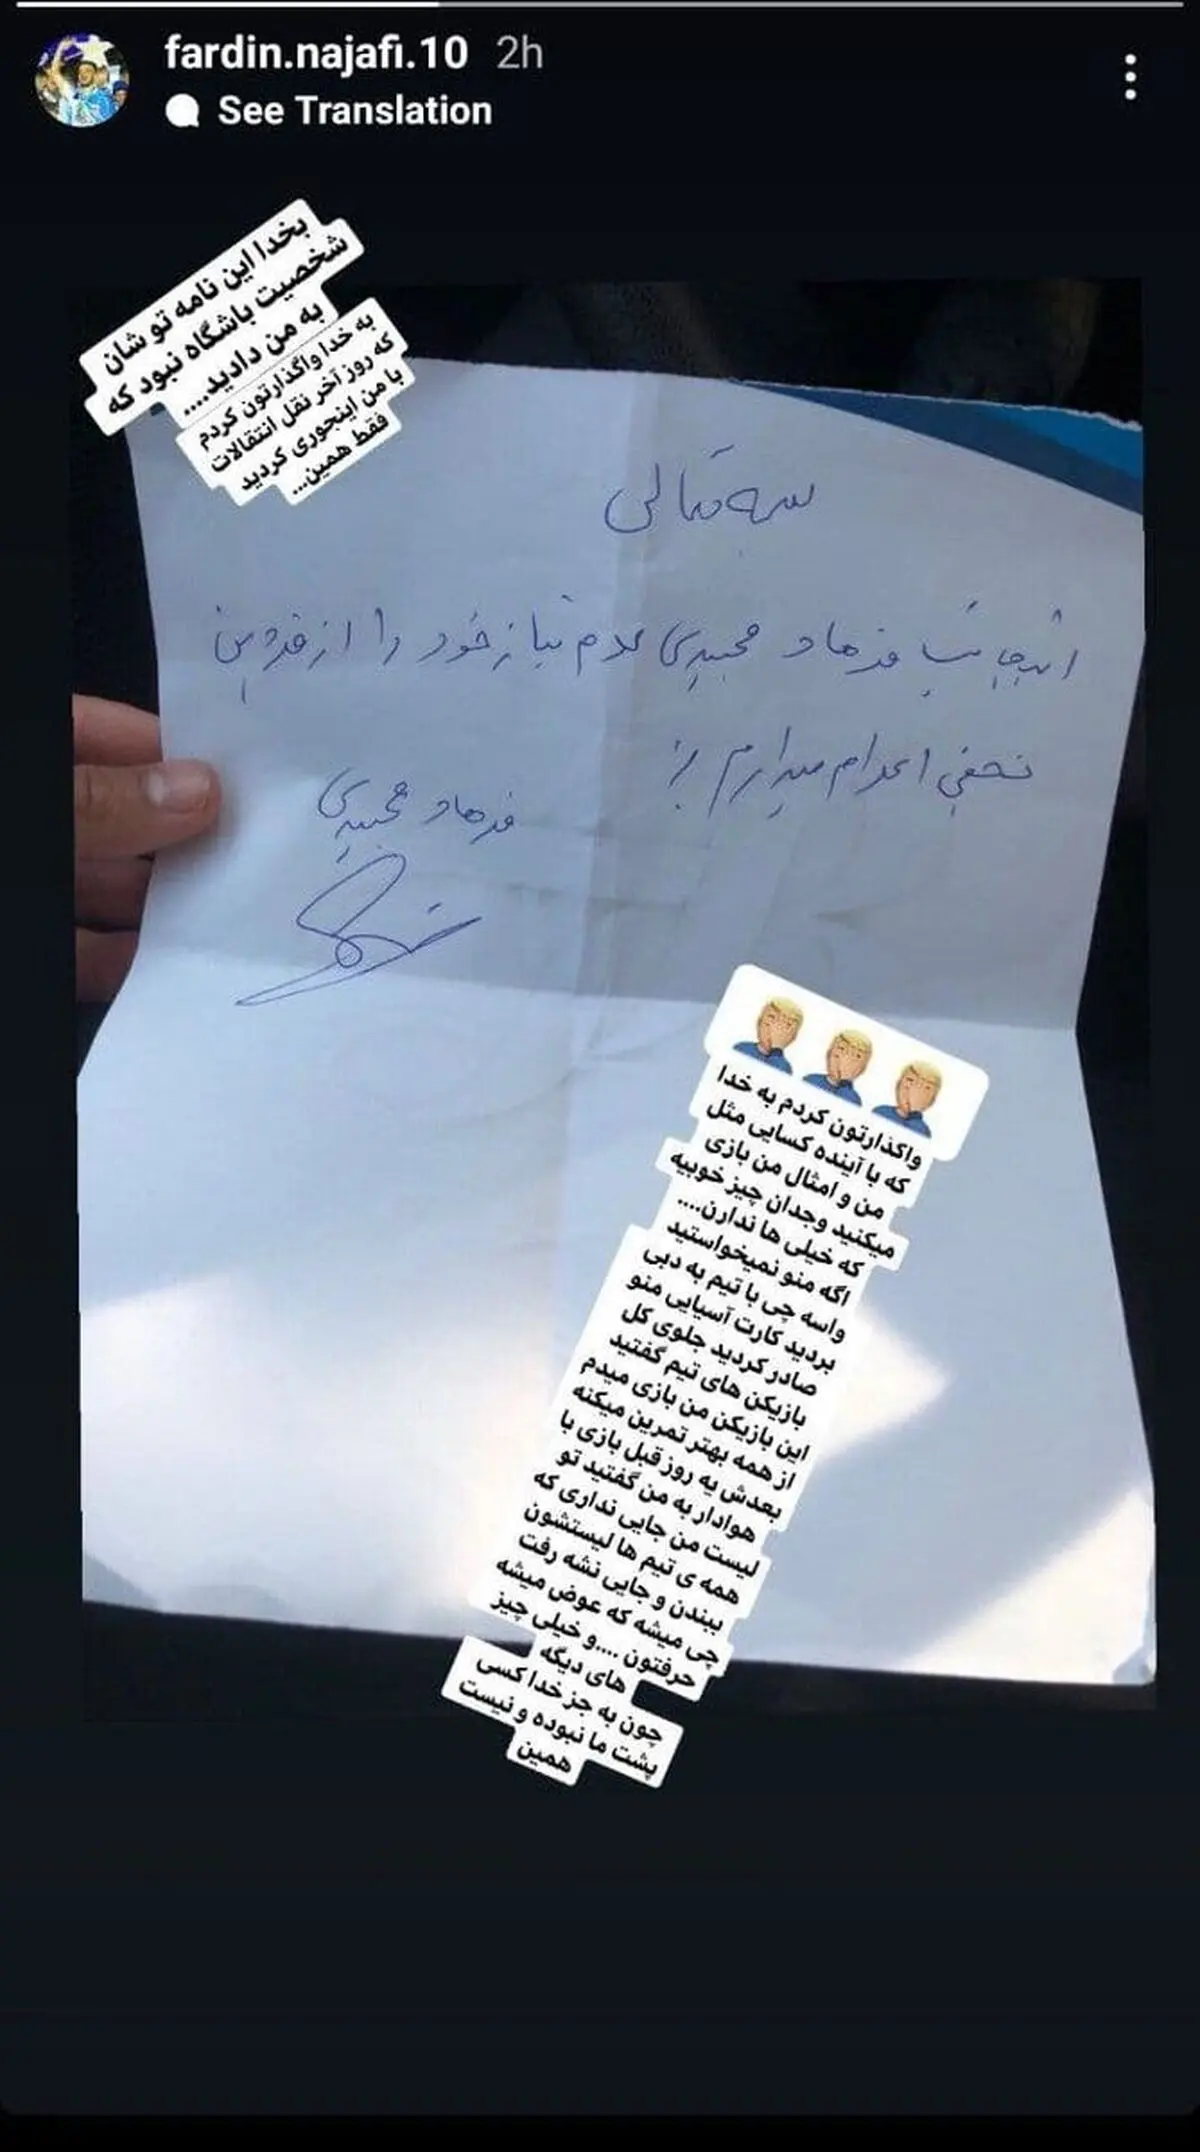 fardin.najafi.10 2h
See Translation
بخدا این نامه تو شان
شخصیت باشگاه نبود که
به من دادید....
به خدا واگذارتون کردم
که روز آخر نقل انتقالات
با من اینجوری کردید
فقط همین...
بسمه تعالی
اینجانب فرهاد مجیدی عدم نیاز خود را از فردین
نجفی اعلام میدارم
فرهاد مجیدی
🤦🏼‍♂️🤦🏼‍♂️🤦🏼‍♂️
واگذارتون کردم به خدا
که با آینده کسایی مثل
من و امثال من بازی
میکنید وجدان چیز خوبیه
که خیلی ها ندارن....
اگه منو نمیخواستید
واسه چی با تیم به دبی
بردید کارت آسیایی منو
صادر کردید جلوی کل
بازیکن های تیم گفتید
این بازیکن من بازی میدم
از همه بهتر تمرین میکنه
بعدش یه روز قبل بازی با
هوادار به من گفتید تو
لیست من جایی نداری که
همه ی تیم ها لیستشون
ببندن و جایی نشه رفت
چی میشه که عوض میشه
حرفتون ....و خیلی چیز
های دیگه
چون به جز خدا کسی
پشت ما نبوده و نیست
همین